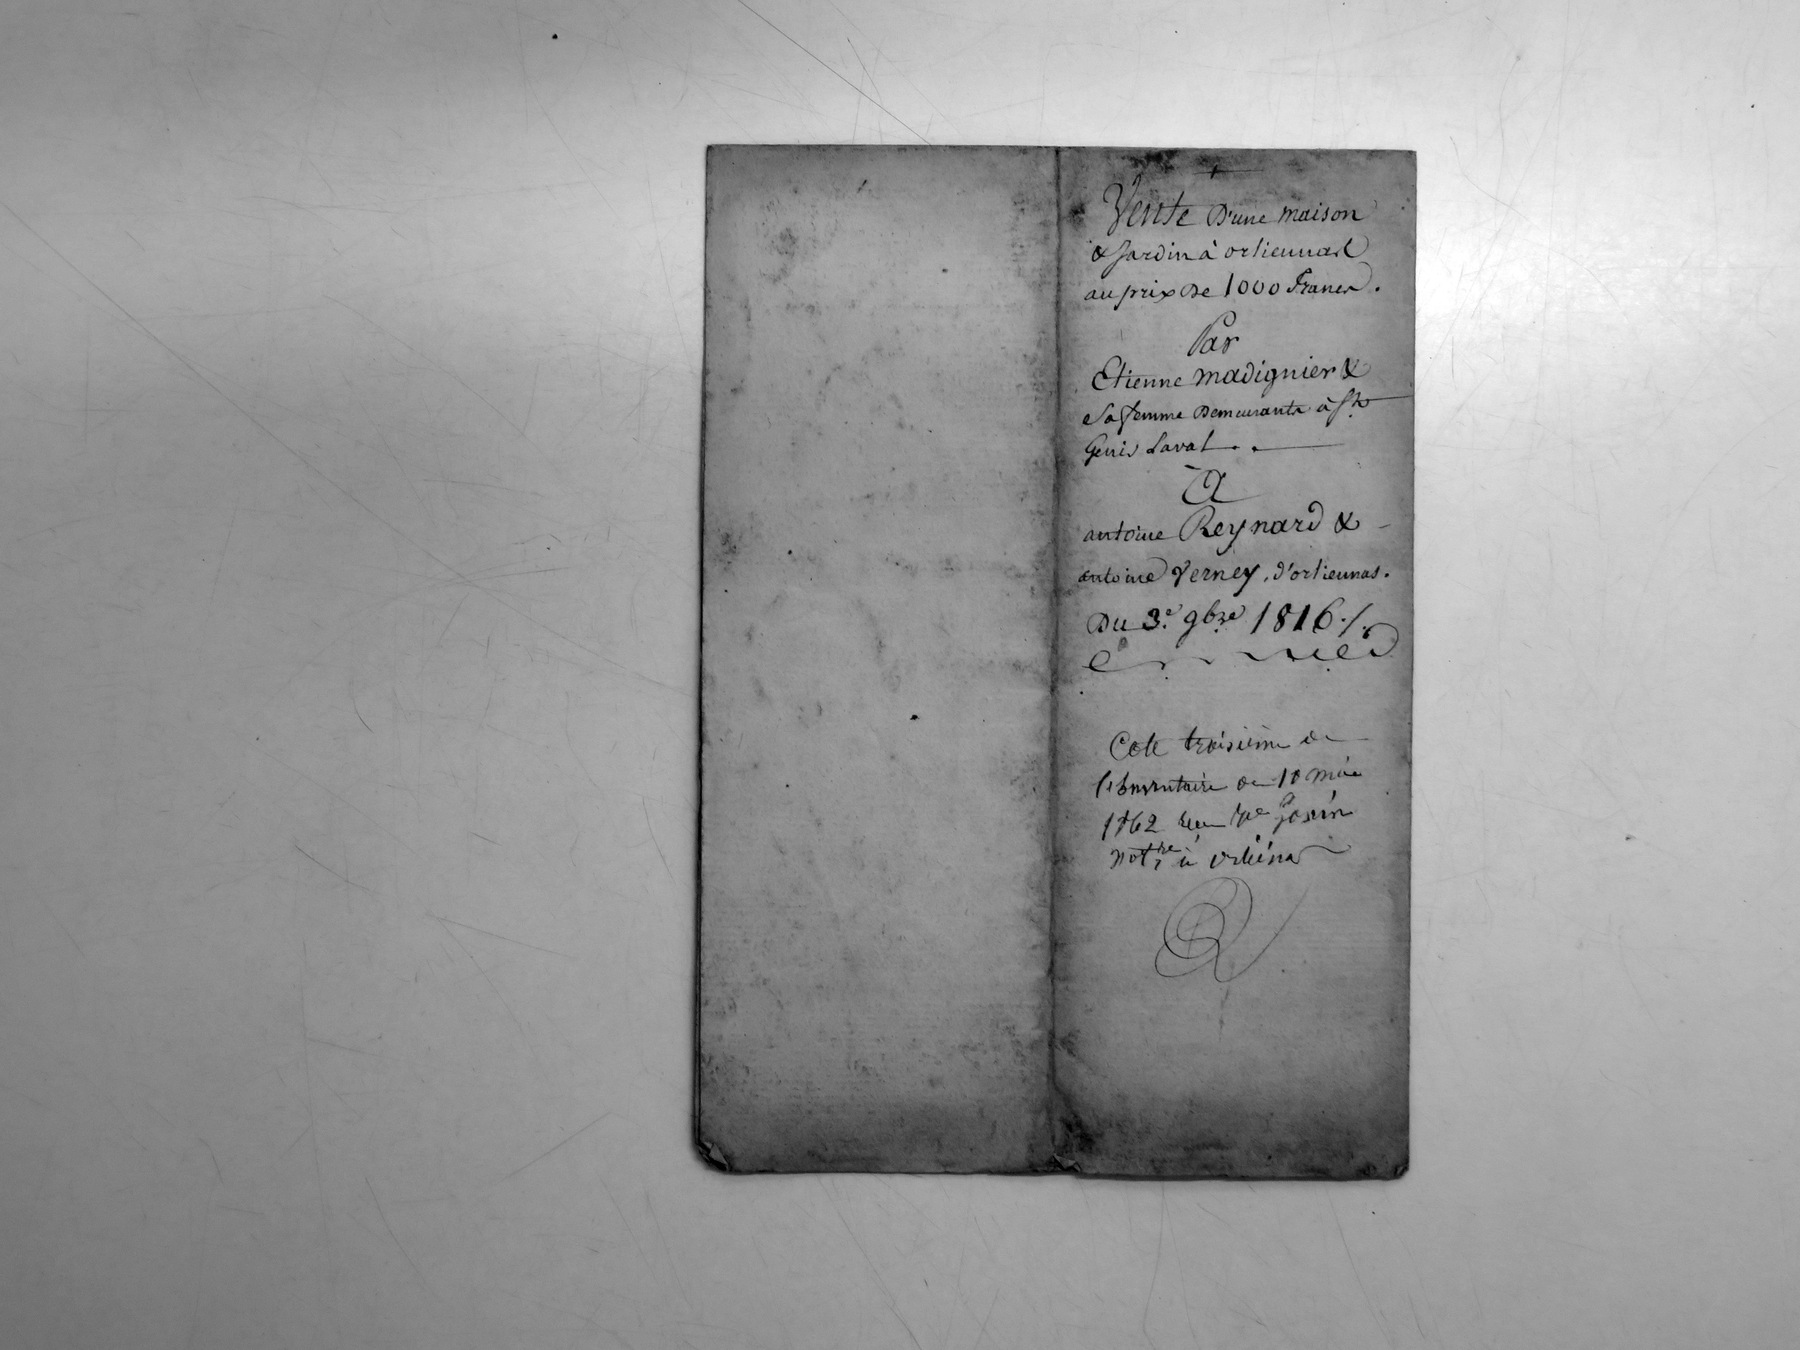 Vente D'une maison
& Jardin à orliennas
au prix De 1000 Francs.
Par
Etienne Madignier &
Sa femme Demeurants à St
Genis Laval.
A
antoine Reynard &
antoine Verney, d'orliennas.
Du 3.e 9bre 1816./.
Cote troisième de
l'inventaire du 10 mai
1862 reçu Me
notre à Orliénas